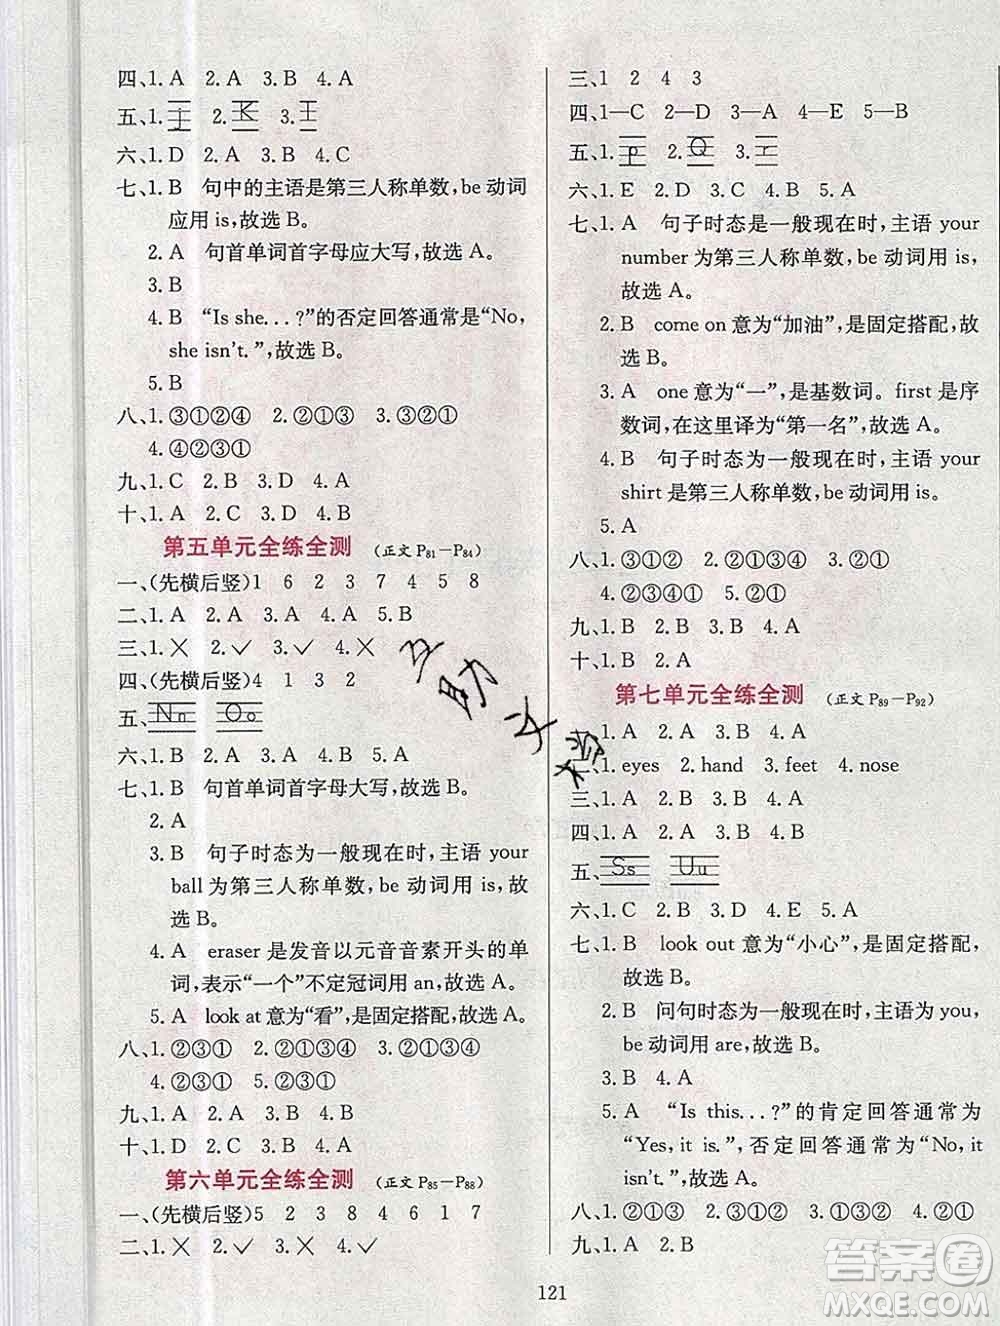 四、1. A 2. A 3. B 4. A
五、1. j 2. K 3. I
六、1. D 2. A 3. B 4. C
七、1. B 句中的主语是第三人称单数,be动词
应用is,故选B。
2. A 句首单词首字母应大写,故选A。
3. B
4. B “Is she. . . ?”的否定回答通常是“No,
she isn't.”,故选B。
5. B
八、1. ③①②④ 2. ②①③ 3. ④③②①
4. ④②③①
九、1. C 2. B 3. D 4. A
十、1. A 2. C 3. D 4. B
第五单元全练全测 (正文 P81－P84)
一、(先横后竖)1 6 2 3 7 4 5 8
二、1. A 2. A 3. A 4. A 5. B
三、1. ✕ 2. ✓ 3. ✓ 4. ✕
四、(先横后竖)4 1 3 2
五、Nn Oo
六、1. B 2. A 3. B 4. A
七、1. B 句首单词首字母大写,故选B。
2. A
3. B 句子时态为一般现在时,主语 your
ball 为第三人称单数,be 动词用 is,故
选B。
4. A eraser 是发音以元音音素开头的单
词,表示“一个”不定冠词用 an,故选A。
5. A look at 意为“看”,是固定搭配,故选A。
八、1. ②③① 2. ②①③④ 3. ②①③④
4. ②③① 5. ②③①
九、1. A 2. A 3. B 4. B
十、1. D 2. C 3. B 4. A
第六单元全练全测 (正文 P85－P88)
一、(先横后竖)5 2 3 8 4 6 1 7
二、1. ✕ 2. ✓ 3. ✕ 4. ✓
三、1 2 4 3
四、1—C 2—D 3—A 4—E 5—B
五、1. p 2. Q 3. r
六、1. E 2. D 3. C 4. B 5. A
七、1. A 句子时态是一般现在时,主语 your
number 为第三人称单数,be 动词用 is,
故选A。
2. B come on 意为“加油”,是固定搭配,故
选B。
3. A one 意为“一”,是基数词。first 是序
数词,在这里译为“第一名”,故选A。
4. B 句子时态为一般现在时,主语 your
shirt 是第三人称单数,be 动词用 is,故
选B。
5. A
八、1. ③①② 2. ③①②④ 3. ②③①
4. ②③④① 5. ②③④①
九、1. B 2. B 3. A 4. B 5. A
十、1. B 2. A 3. B
第七单元全练全测 (正文 P89－P92)
一、1. A 2. A 3. B 4. A
二、1. eyes 2. hand 3. feet 4. nose
三、1. A 2. B 3. A 4. A
四、1. A 2. A 3. B 4. B
五、Ss Uu
六、1. C 2. B 3. D 4. E 5. A
七、1. B look out 意为“小心”,是固定搭配,
故选B。
2. B 问句时态为一般现在时,主语为 you,
be 动词用 are,故选B。
3. B 4. A
5. A “Is this. . . ?”的肯定回答通常为
“Yes, it is.”,否定回答通常为“No, it
isn't.”,故选A。
八、1. ②①③ 2. ③②① 3. ①③② 4. ②①③
九、1. A 2. B
121
答案圈
MXQE.COM